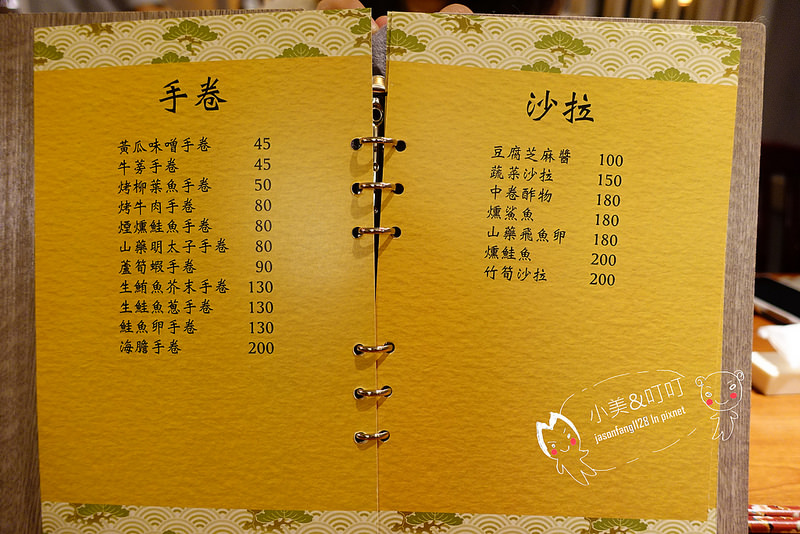 手卷
黃瓜味噌手卷 45
牛蒡手卷 45
烤柳葉魚手卷 50
烤牛肉手卷 80
煙燻鮭魚手卷 80
山藥明太子手卷 80
蘆筍蝦手卷 90
生鮪魚芥末手卷 130
生鮭魚蔥手卷 130
鮭魚卵手卷 130
海膽手卷 200
沙拉
豆腐芝麻醬 100
蔬菜沙拉 150
中卷酢物 180
燻鯊魚 180
山藥飛魚卵 180
燻鮭魚 200
竹筍沙拉 200
小美&叮叮
jasonfang1128 In pixnet